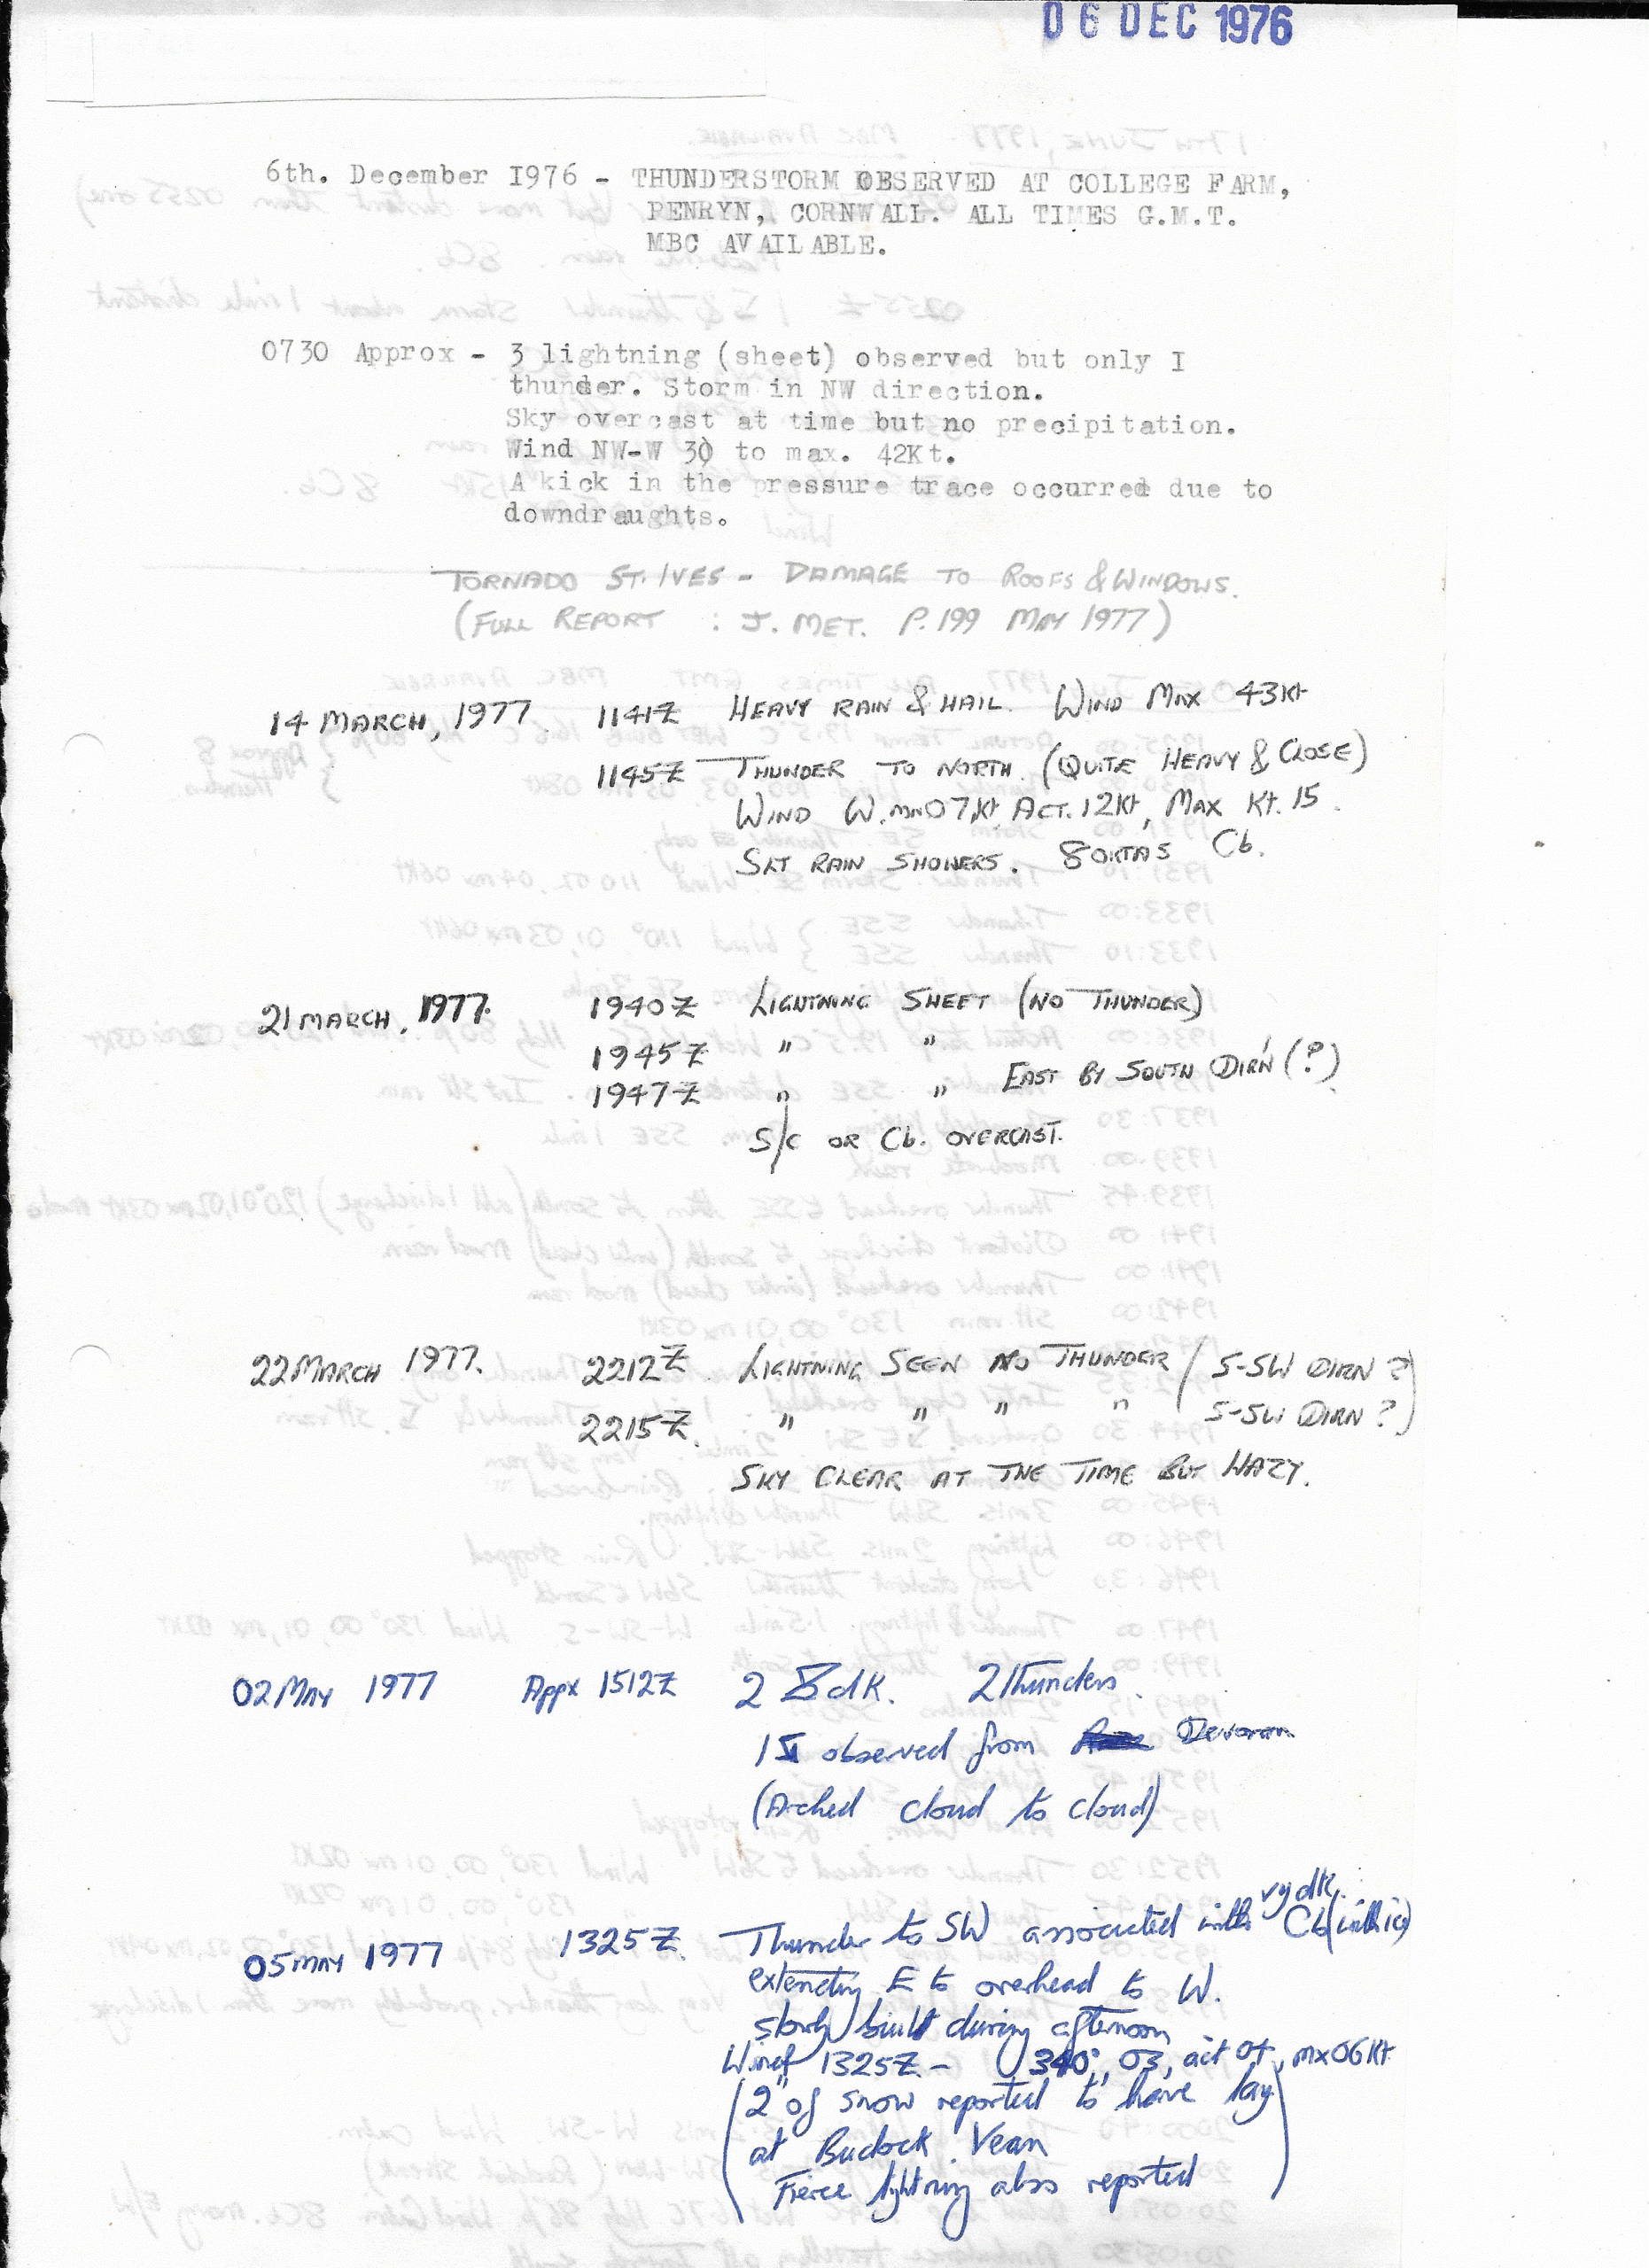 06 DEC 1976
6th. December I976 - THUNDERSTORM OBSERVED AT COLLEGE FARM,
PENRYN, CORNWALL. ALL TIMES G.M.T.
MBC AVAILABLE.
0730 Approx - 3 lightning (sheet) observed but only I
thunder. Storm in NW direction.
Sky overcast at time but no precipitation.
Wind NW-W 30 to max. 42Kt.
A kick in the pressure trace occurred due to
downdraughts.
TORNADO ST. IVES - DAMAGE TO ROOFS & WINDOWS.
(FULL REPORT : J. MET. P. 199 MAY 1977)
14 MARCH, 1977 1141Z HEAVY RAIN & HAIL. WIND MAX 43Kt
1145Z THUNDER TO NORTH. (QUITE HEAVY & CLOSE)
WIND W. MN 07Kt, ACT. 12Kt, MAX Kt. 15.
SLT RAIN SHOWERS. 8 OKTAS Cb.
21 MARCH, 1977. 1940Z LIGHTNING SHEET (NO THUNDER)
1945Z " "
1947Z " " EAST BY SOUTH DIR'N (?)
S/c OR Cb. OVERCAST.
22 MARCH 1977. 2212Z. LIGHTNING SEEN NO THUNDER (S-SW DIRN ?)
2215Z. " " " " S-SW DIRN ?)
SKY CLEAR AT THE TIME BUT HAZY.
02 MAY 1977 Appx 1512Z 2 dk. 2 Thunders.
1 observed from Devoran
(Arched cloud to cloud)
05 MAY 1977 1325Z. Thunder to SW associated with vy dk. Cb
extending E to overhead to W.
slowly built during afternoon
Wind 1325Z - 340°, 03, act 04, mx 06Kt
(2" of snow reported to have lay
at Budock Vean
Fierce lightning also reported)